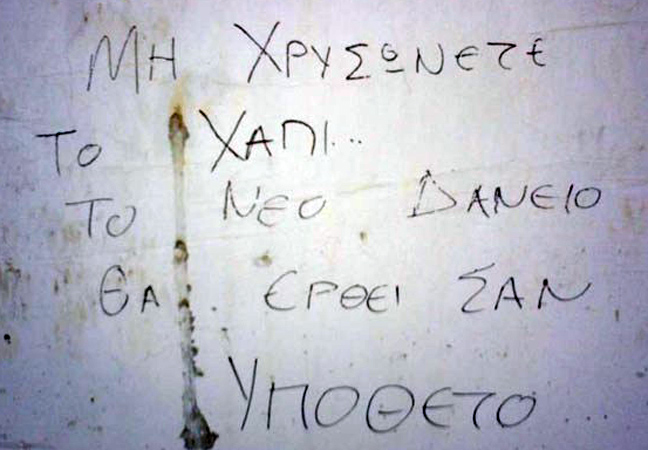 ΜΗ ΧΡΥΣΩΝΕΤΕ
ΤΟ ΧΑΠΙ...
ΤΟ ΝΕΟ ΔΑΝΕΙΟ
ΘΑ ΕΡΘΕΙ ΣΑΝ
ΥΠΟΘΕΤΟ...